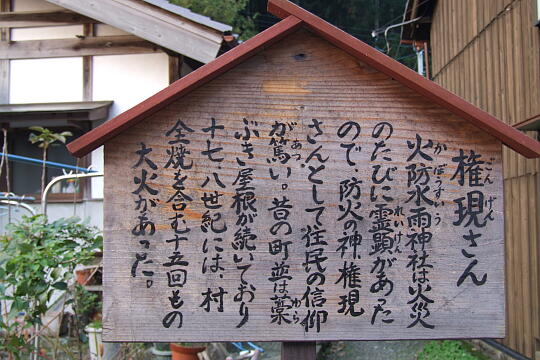 権現さん
ごんげん
火防水雨神社は火災
かぼうすいう
のたびに霊顕があった
れいけん
ので、防火の神、権現
さんとして住民の信仰
が篤い。昔の町並は藁
あつ
わら
ぶき屋根が続いており
十七、八世紀には、村
全焼を含む十五回もの
大火があった。